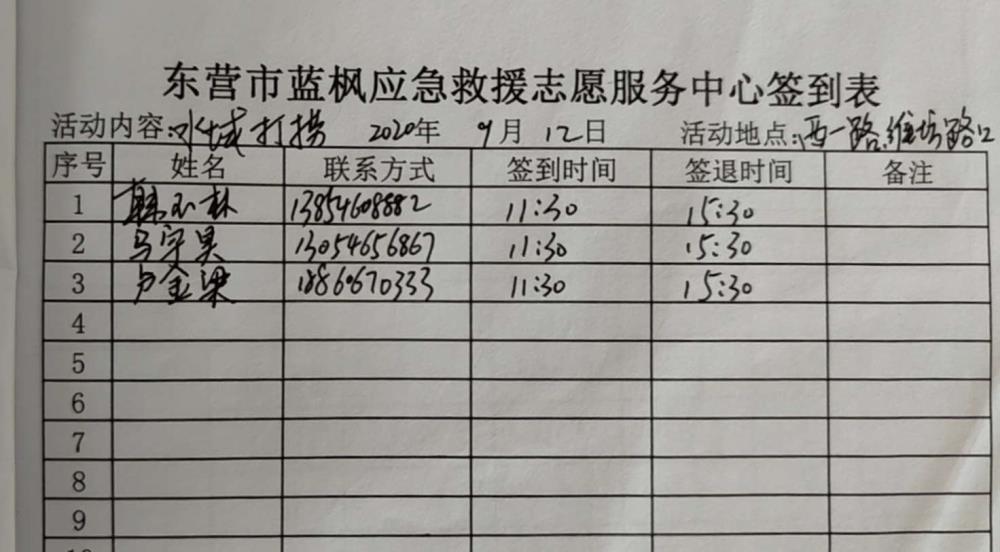 东营市蓝枫应急救援志愿服务中心签到表
活动内容:水域打捞 2020年 9月 12日 活动地点:西一路潍坊路口
序号 姓名 联系方式 签到时间 签退时间 备注
1 韩玉林 13854608882 11:30 15:30
2 马宇昊 13054656867 11:30 15:30
3 卢金梁 18860670333 11:30 15:30
4
5
6
7
8
9